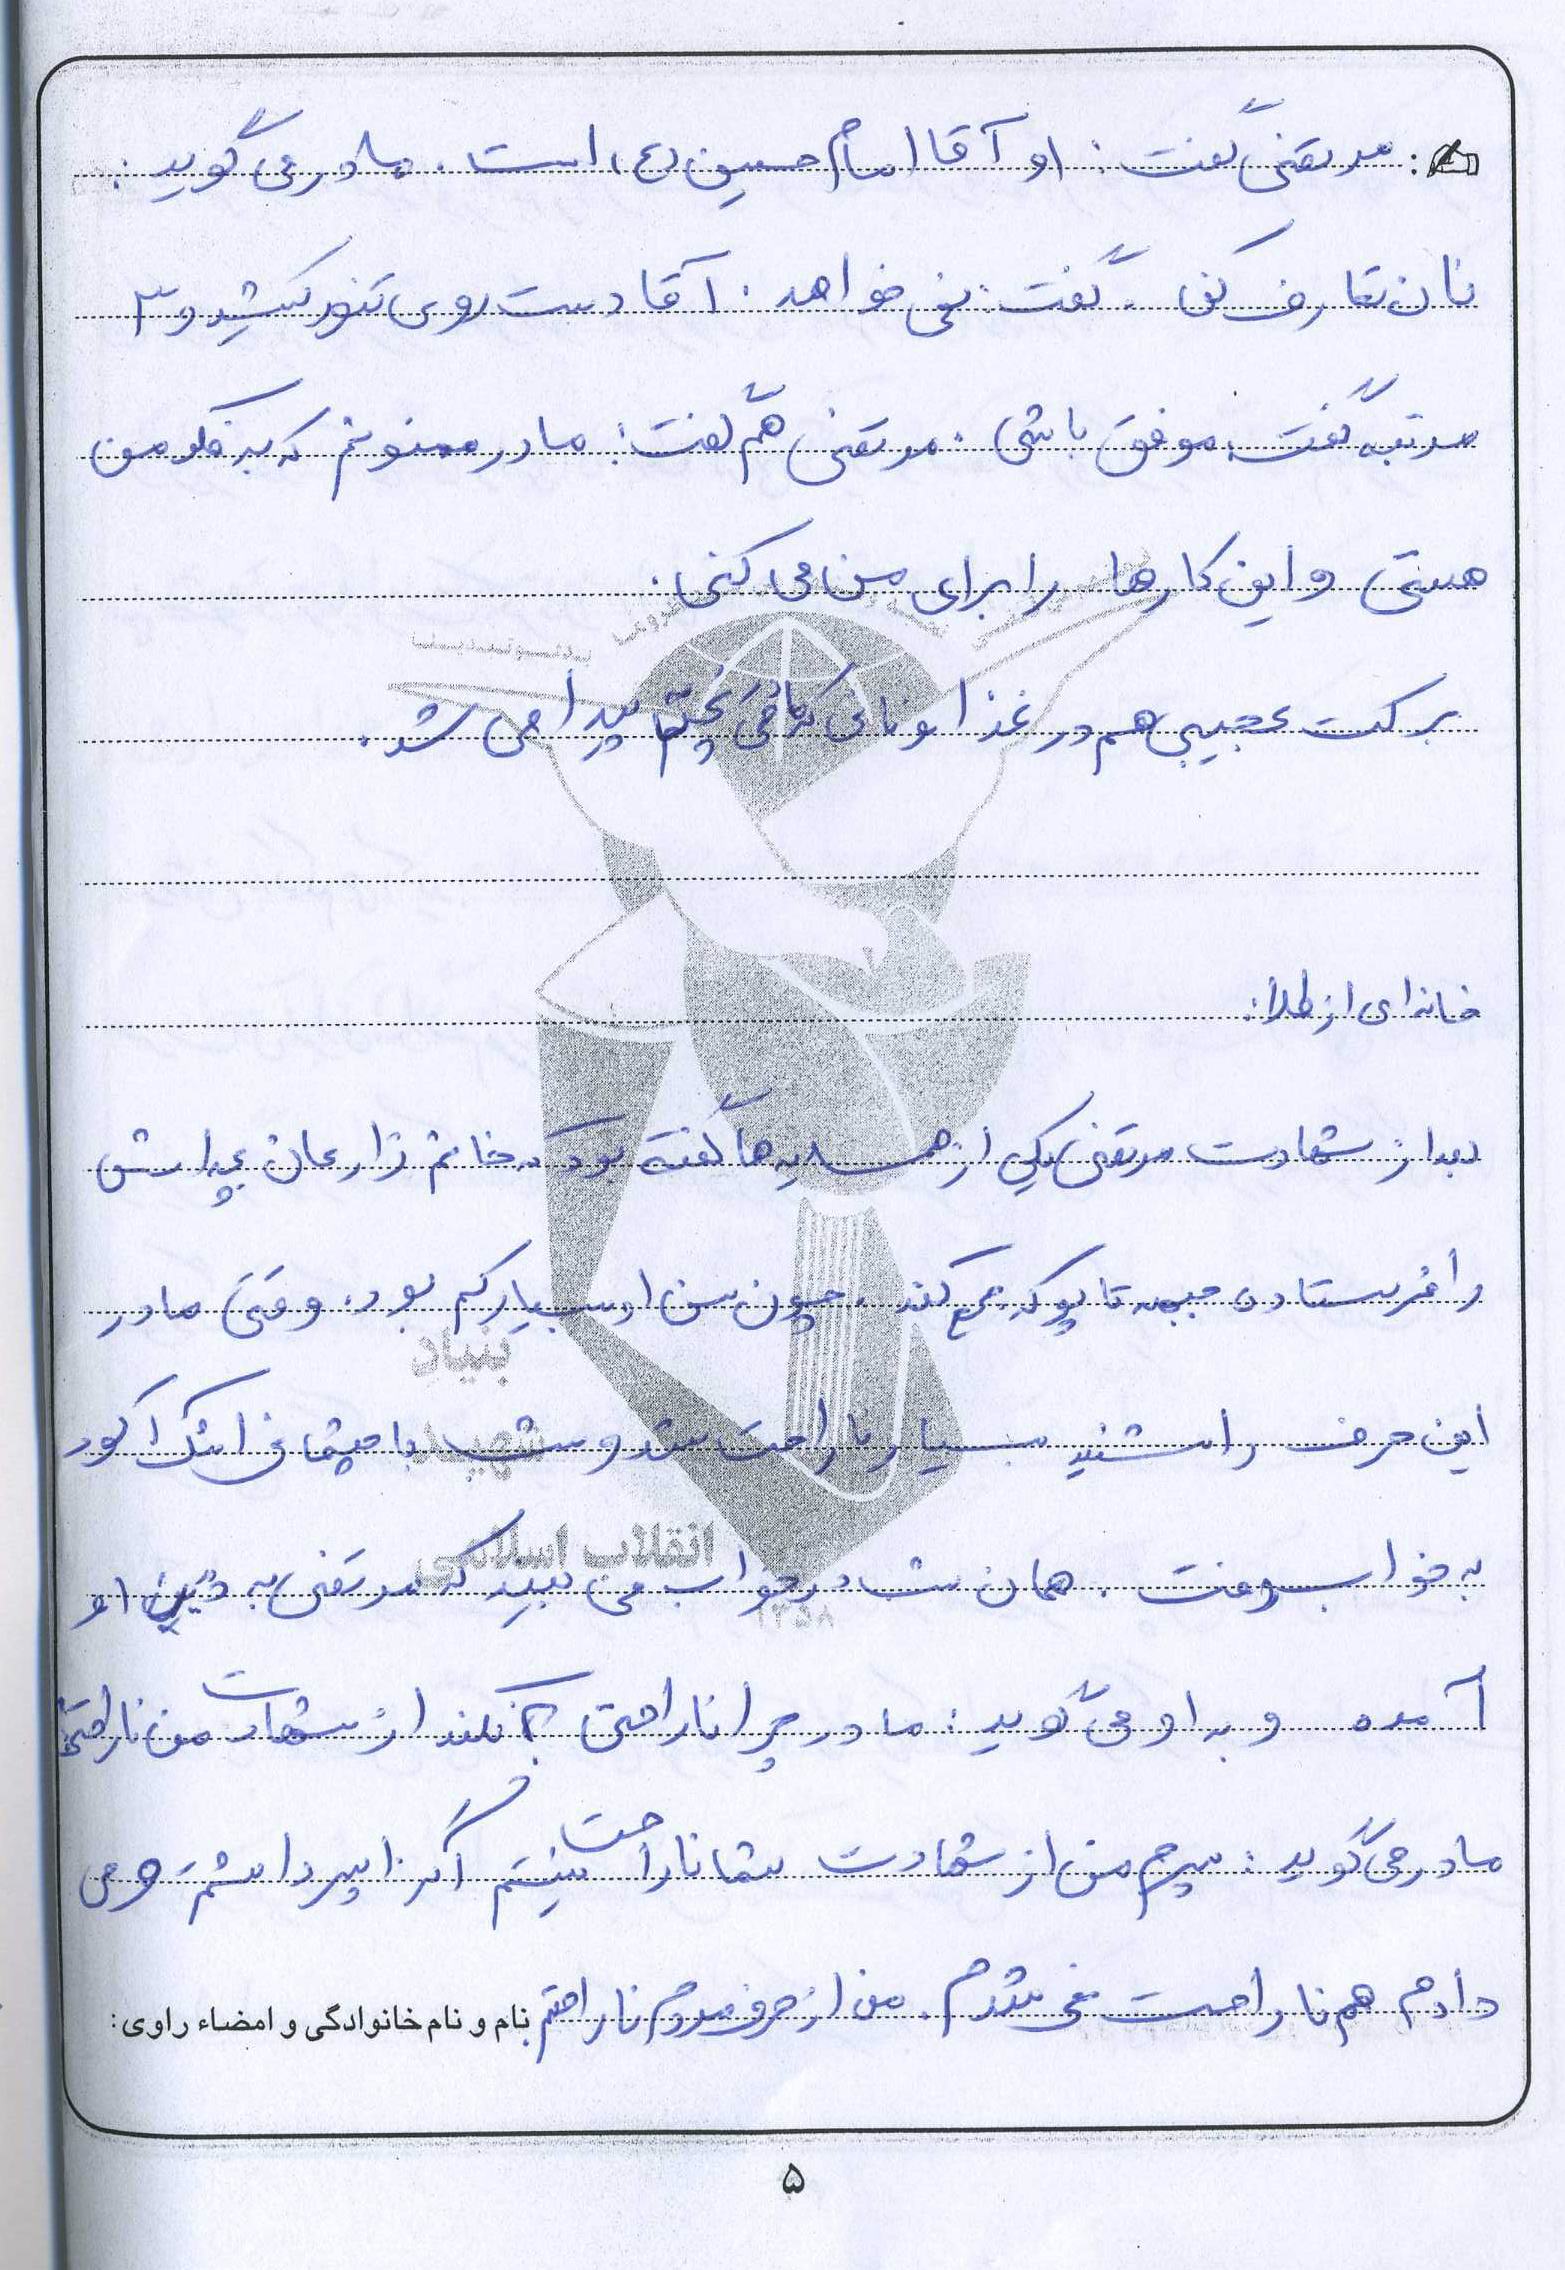 مرتضی گفت: او آقا امام حسین (ع) است. مادر می گوید:
نان تعارف کن. گفت: نمی خواهد. آقا دست روی تنور کشید و ۳
مرتبه گفت: موفق باشی. مرتضی هم گفت: مادر ممنونم که به فکر من
هستی و این کارها را برای من می کنی.
برکت عجیبی هم در غذا و نانی که می پختم پیدا می شد.
خانه ای از طلا:
بعد از شهادت مرتضی یکی از همسایه ها گفته بود که خانم زارعان بچه اش
را فرستاده جبهه تا پوکه جمع کند. چون سن او بسیار کم بود. وقتی مادر
این حرف را شنید بسیار ناراحت شد و شب با چشمانی اشک آلود
به خواب رفت. همان شب در خواب می بیند که مرتضی به دیدن او
آمده و به او می گوید: مادر چرا ناراحتی؟ نکند از شهادت من ناراحتی؟
مادر می گوید: پسرم من از شهادت شما ناراحت نیستم اگر ۱۰ پسر داشتم و می
دادم هم ناراحت نمی شدم. من از حرف مردم ناراحتم
نام و نام خانوادگی و امضاء راوی:
بنیاد
شهید
انقلاب اسلامی
۱۳۵۸
۵